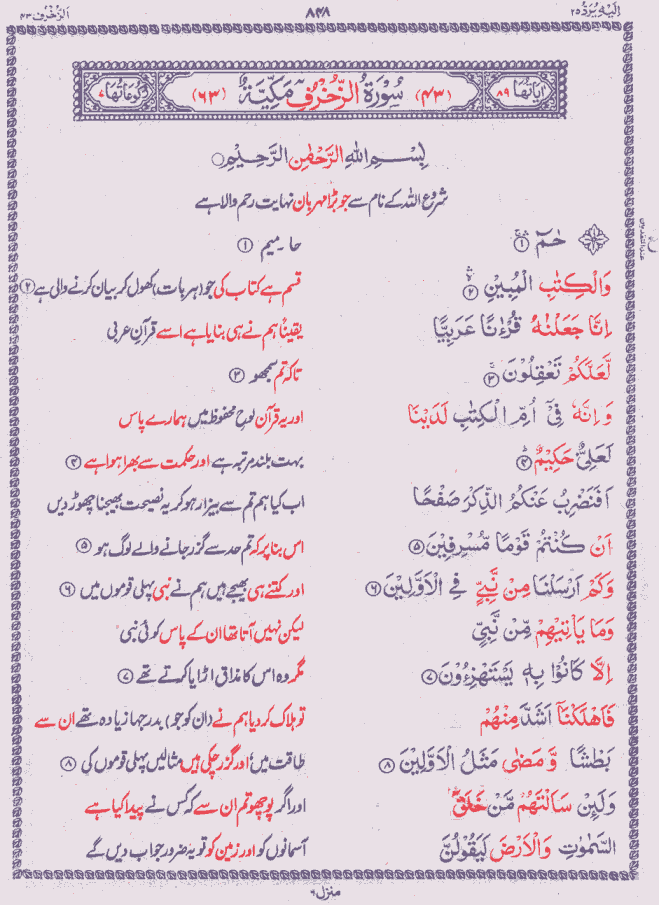 اِلَیْهِ یُرَدُّ ۲۵ ۸۴۸ الزُّخْرُف ۴۳
اٰیَاتُهَا ۸۹ (۴۳) سُوْرَةُ الزُّخْرُفِ مَكِّیَّةٌ (۶۳) رُكُوْعَاتُهَا ۷
بِسْمِ اللّٰهِ الرَّحْمٰنِ الرَّحِیْمِ
شروع اللہ کے نام سے جو بڑا مہربان نہایت رحم والا ہے
حٰمٓ ۱ حا۔ میم ۱
وَالْكِتٰبِ الْمُبِیْنِ ۲ قسم ہے کتاب کی جو (ہر بات) کھول کر بیان کرنے والی ہے ۲
اِنَّا جَعَلْنٰهُ قُرْءٰنًا عَرَبِیًّا یقیناً ہم نے ہی بنایا ہے اسے قرآنِ عربی
لَّعَلَّكُمْ تَعْقِلُوْنَ ۳ تاکہ تم سمجھو ۳
وَاِنَّهٗ فِیْۤ اُمِّ الْكِتٰبِ لَدَیْنَا اور یہ قرآن لوح محفوظ میں ہمارے پاس
لَعَلِیٌّ حَكِیْمٌ ۴ بہت بلند مرتبہ ہے اور حکمت سے بھرا ہوا ہے ۴
اَفَنَضْرِبُ عَنْكُمُ الذِّكْرَ صَفْحًا اب کیا ہم تم سے بیزار ہو کر یہ نصیحت بھیجنا چھوڑ دیں
اَنْ كُنْتُمْ قَوْمًا مُّسْرِفِیْنَ ۵ اس بنا پر کہ تم حد سے گزر جانے والے لوگ ہو ۵
وَكَمْ اَرْسَلْنَا مِنْ نَّبِیٍّ فِی الْاَوَّلِیْنَ ۶ اور کتنے ہی بھیجے ہیں ہم نے نبی پہلی قوموں میں ۶
وَمَا یَاْتِیْهِمْ مِّنْ نَّبِیٍّ لیکن نہیں آتا تھا ان کے پاس کوئی نبی
اِلَّا كَانُوْا بِهٖ یَسْتَهْزِءُوْنَ ۷ مگر وہ اس کا مذاق اڑایا کرتے تھے ۷
فَاَهْلَكْنَاۤ اَشَدَّ مِنْهُمْ تو ہلاک کر دیا ہم نے (ان کو جو) بدرجہا زیادہ تھے ان سے
بَطْشًا وَّمَضٰی مَثَلُ الْاَوَّلِیْنَ ۸ طاقت میں اور گزر چکی ہیں مثالیں پہلی قوموں کی ۸
وَلَىِٕنْ سَاَلْتَهُمْ مَّنْ خَلَقَ اور اگر پوچھو تم ان سے کہ کس نے پیدا کیا ہے
السَّمٰوٰتِ وَالْاَرْضَ لَیَقُوْلُنَّ آسمانوں کو اور زمین کو تو یہ ضرور جواب دیں گے
منزل ۶